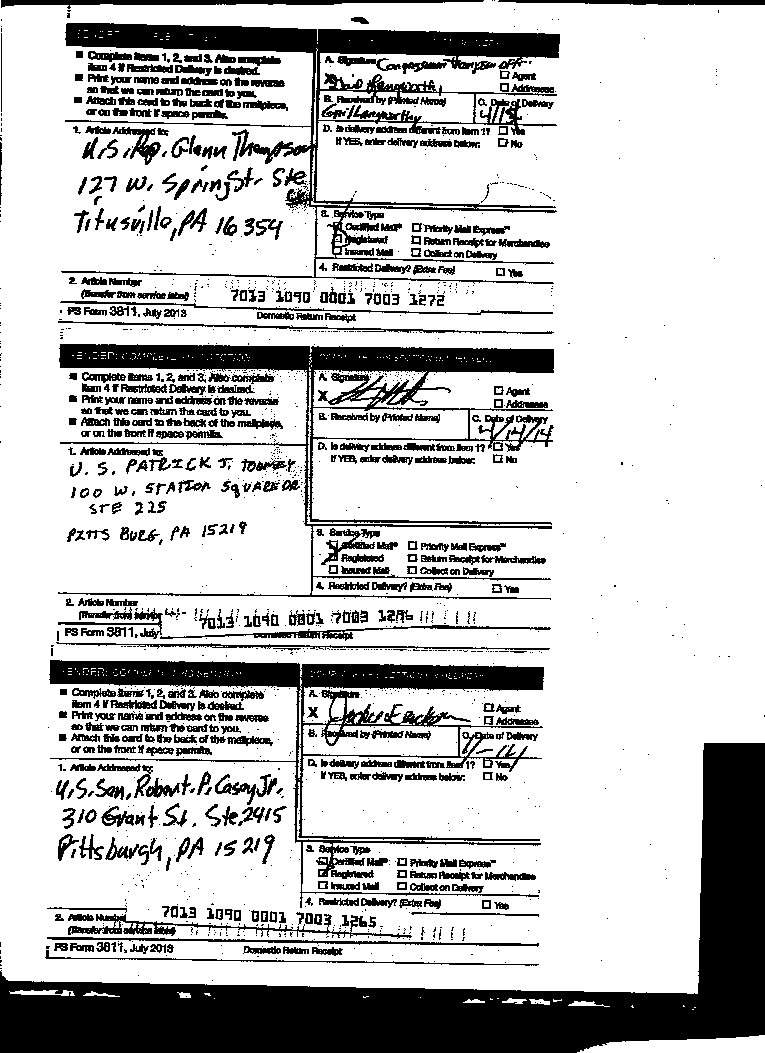 ■ Complete items 1, 2, and 3. Also complete
item 4 if Restricted Delivery is desired.
■ Print your name and address on the reverse
so that we can return the card to you.
■ Attach this card to the back of the mailpiece,
or on the front if space permits.
1. Article Addressed to:
U.S. Rep. Glenn Thompson
127 W. Spring St. Ste
Titusville, PA 16354
A. Signature
☐ Agent
☐ Addressee
B. Received by (Printed Name)
C. Date of Delivery
D. Is delivery address different from item 1? ☐ Yes
If YES, enter delivery address below: ☐ No
3. Service Type
Certified Mail® ☐ Priority Mail Express™
Registered ☐ Return Receipt for Merchandise
☐ Insured Mail ☐ Collect on Delivery
4. Restricted Delivery? (Extra Fee) ☐ Yes
2. Article Number
(Transfer from service label)
7013 1090 0001 7003 1272
PS Form 3811, July 2013 Domestic Return Receipt
■ Complete items 1, 2, and 3. Also complete
item 4 if Restricted Delivery is desired.
■ Print your name and address on the reverse
so that we can return the card to you.
■ Attach this card to the back of the mailpiece,
or on the front if space permits.
1. Article Addressed to:
U. S. PATRICK J. TOOMEY
100 W. STATION SQUARE DR
STE 225
PITTS BURG, PA 15219
A. Signature
X
☐ Agent
☐ Addressee
B. Received by (Printed Name)
C. Date of Delivery
4/14/14
D. Is delivery address different from item 1? ☐ Yes
If YES, enter delivery address below: ☐ No
3. Service Type
Certified Mail® ☐ Priority Mail Express™
Registered ☐ Return Receipt for Merchandise
☐ Insured Mail ☐ Collect on Delivery
4. Restricted Delivery? (Extra Fee) ☐ Yes
2. Article Number
(Transfer from service
7013 1090 0001 7003 1286
PS Form 3811, July Domestic Return Receipt
■ Complete items 1, 2, and 3. Also complete
item 4 if Restricted Delivery is desired.
■ Print your name and address on the reverse
so that we can return the card to you.
■ Attach this card to the back of the mailpiece,
or on the front if space permits.
1. Article Addressed to:
U.S. Sen. Robert P. Casey Jr.
310 Grant St. Ste. 2415
Pittsburgh, PA 15219
A. Signature
X
☐ Agent
☐ Addressee
B. Received by (Printed Name)
C. Date of Delivery
D. Is delivery address different from item 1? ☐ Yes
If YES, enter delivery address below: ☐ No
3. Service Type
Certified Mail® ☐ Priority Mail Express™
Registered ☐ Return Receipt for Merchandise
☐ Insured Mail ☐ Collect on Delivery
4. Restricted Delivery? (Extra Fee) ☐ Yes
2. Article Number
(Transfer from service label)
7013 1090 0001 7003 1265
PS Form 3811, July 2013 Domestic Return Receipt